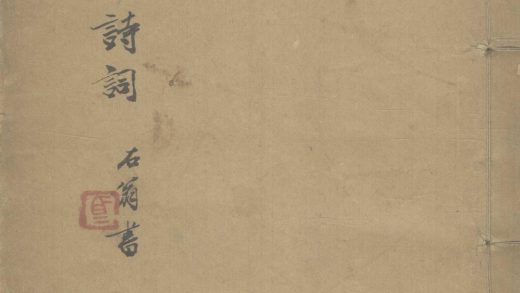 詩詞
石翁書